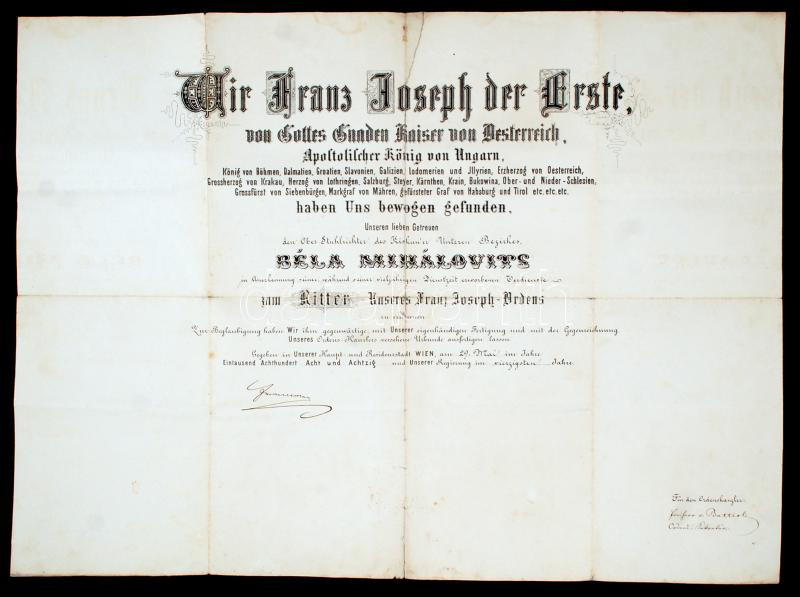 Wir Franz Joseph der Erste,
von Gottes Gnaden Kaiser von Oesterreich,
Apostolischer König von Ungarn,
König von Böhmen, Dalmatien, Croatien, Slavonien, Galizien, Lodomerien und Jllyrien, Erzherzog von Oesterreich,
Grossherzog von Krakau, Herzog von Lothringen, Salzburg, Steyer, Kärnthen, Krain, Bukowina, Ober- und Nieder-Schlesien,
Grossfürst von Siebenbürgen, Markgraf von Mähren, gefürsteter Graf von Habsburg und Tirol etc. etc. etc.
haben Uns bewogen gefunden,
Unseren lieben Getreuen
den Ober Stuhlrichter des Unteren Bezirkes,
BÉLA MIHÁLOVITS
in Anerkennung seiner, während seiner vieljährigen Dienstzeit erworbenen Verdienste
zum Ritter Unseres Franz Joseph-Ordens
zu ernennen
Zur Beglaubigung haben Wir ihm gegenwärtige, mit Unserer eigenhändigen Fertigung und mit der Gegenzeichnung
Unseres Ordens-Kanzlers versehene Urkunde ausfertigen lassen.
Gegeben in Unserer Haupt- und Residenzstadt WIEN, am 29. Mai im Jahre
Eintausend Achthundert Acht und Achtzig und Unserer Regierung im vierzigsten Jahre.
Für den Ordenskanzler